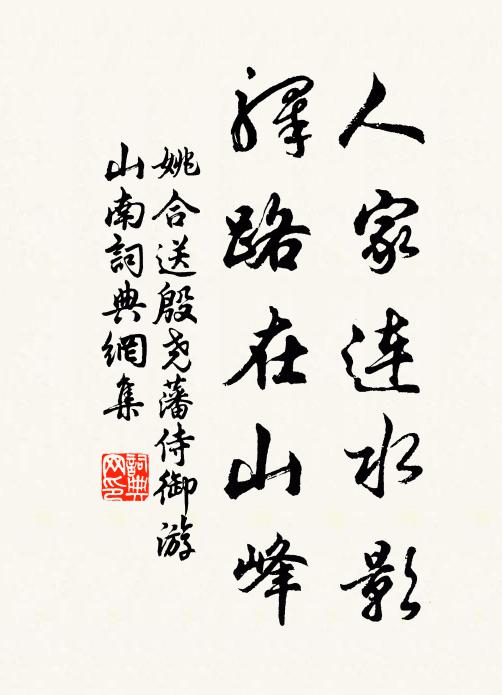 人家连水影
驛路在山峰
姚合送殷尧藩侍御游
山南詞典網集
詞典网印